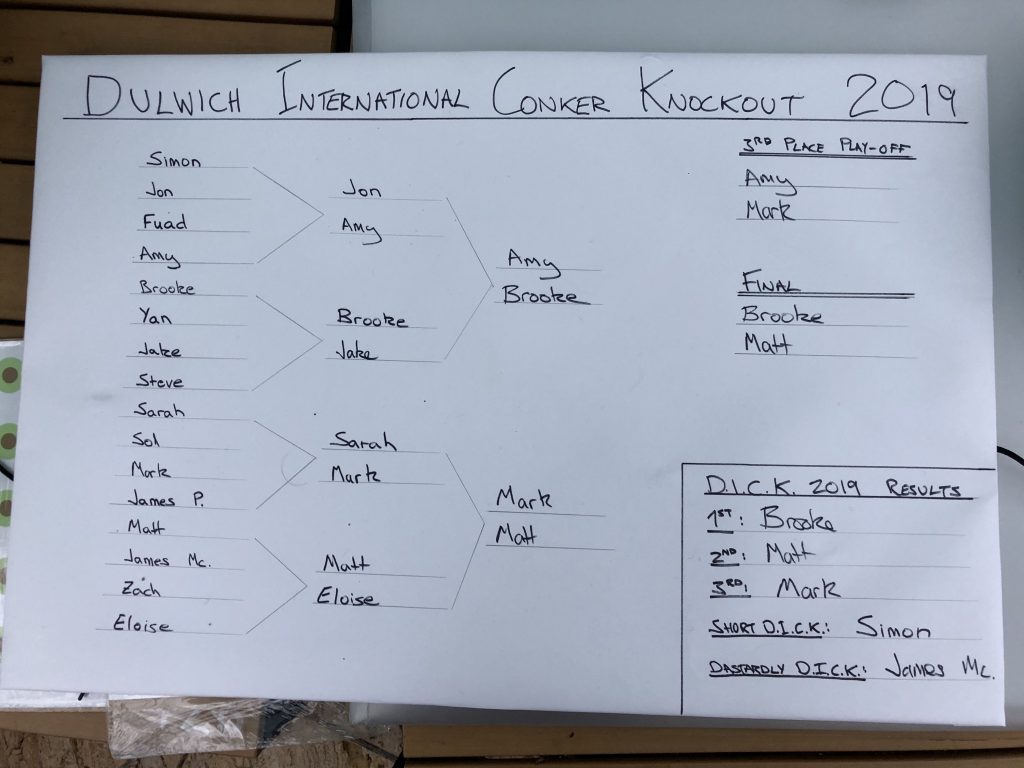 DULWICH INTERNATIONAL CONKER KNOCKOUT 2019
Simon
Jon
Fuad
Amy
Brooke
Yan
Jake
Steve
Sarah
Sol
Mark
James P.
Matt
James Mc.
Zach
Eloise
Jon
Amy
Brooke
Jake
Sarah
Mark
Matt
Eloise
Amy
Brooke
Mark
Matt
3RD PLACE PLAY-OFF
Amy
Mark
FINAL
Brooke
Matt
D.I.C.K. 2019 RESULTS
1ST: Brooke
2ND: Matt
3RD: Mark
SHORT D.I.C.K.: Simon
DASTARDLY D.I.C.K.: James Mc.